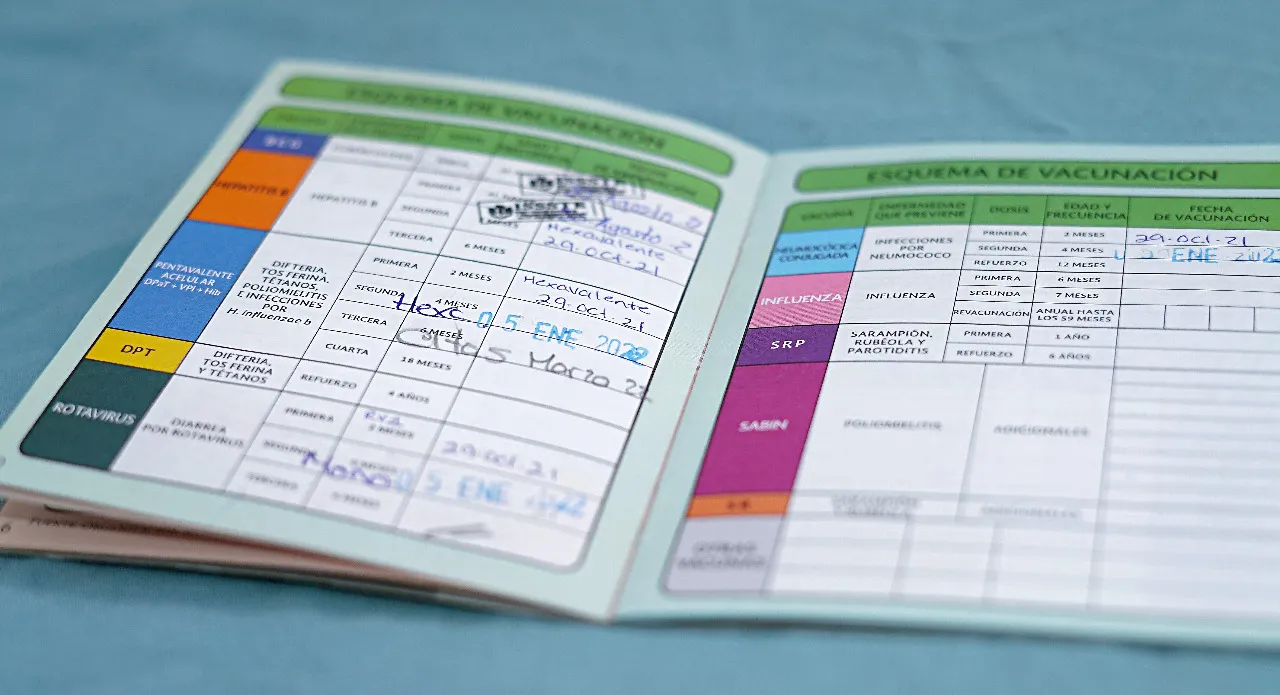 ESQUEMA DE VACUNACIÓN
BCG
HEPATITIS B
HEPATITIS B
PRIMERA
SEGUNDA
TERCERA
6 MESES
ISSSTE
Agosto 2
Hexavalente
29.oct.21
PENTAVALENTE
ACELULAR
DPaT + VPI + Hib
DIFTERIA,
TOS FERINA,
TÉTANOS,
POLIOMIELITIS
E INFECCIONES
POR
H. influenzae b
PRIMERA
2 MESES
Hexavalente
29.oct.21
SEGUNDA
4 MESES
Hexa
05 ENE 2022
TERCERA
6 MESES
5 Marzo 22
CUARTA
18 MESES
DPT
DIFTERIA,
TOS FERINA
Y TÉTANOS
REFUERZO
4 AÑOS
ROTAVIRUS
DIARREA
POR ROTAVIRUS
PRIMERA
2 MESES
29.oct.21
SEGUNDA
05 ENE 2022
TERCERA
ESQUEMA DE VACUNACIÓN
VACUNA
ENFERMEDAD
QUE PREVIENE
DOSIS
EDAD Y
FRECUENCIA
FECHA
DE VACUNACIÓN
NEUMOCÓCICA
CONJUGADA
INFECCIONES
POR
NEUMOCOCO
PRIMERA
2 MESES
29.oct.21
SEGUNDA
4 MESES
ENE 2022
REFUERZO
12 MESES
INFLUENZA
INFLUENZA
PRIMERA
6 MESES
SEGUNDA
7 MESES
REVACUNACIÓN
ANUAL HASTA
LOS 59 MESES
SRP
SARAMPIÓN,
RUBÉOLA Y
PAROTIDITIS
PRIMERA
1 AÑO
REFUERZO
6 AÑOS
SABIN
POLIOMIELITIS
ADICIONALES
SR
ADICIONALES
OTRAS
VACUNAS